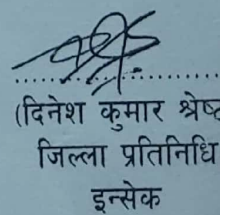 (दिनेश कुमार श्रेष्ठ
जिल्ला प्रतिनिधि
इन्सेक